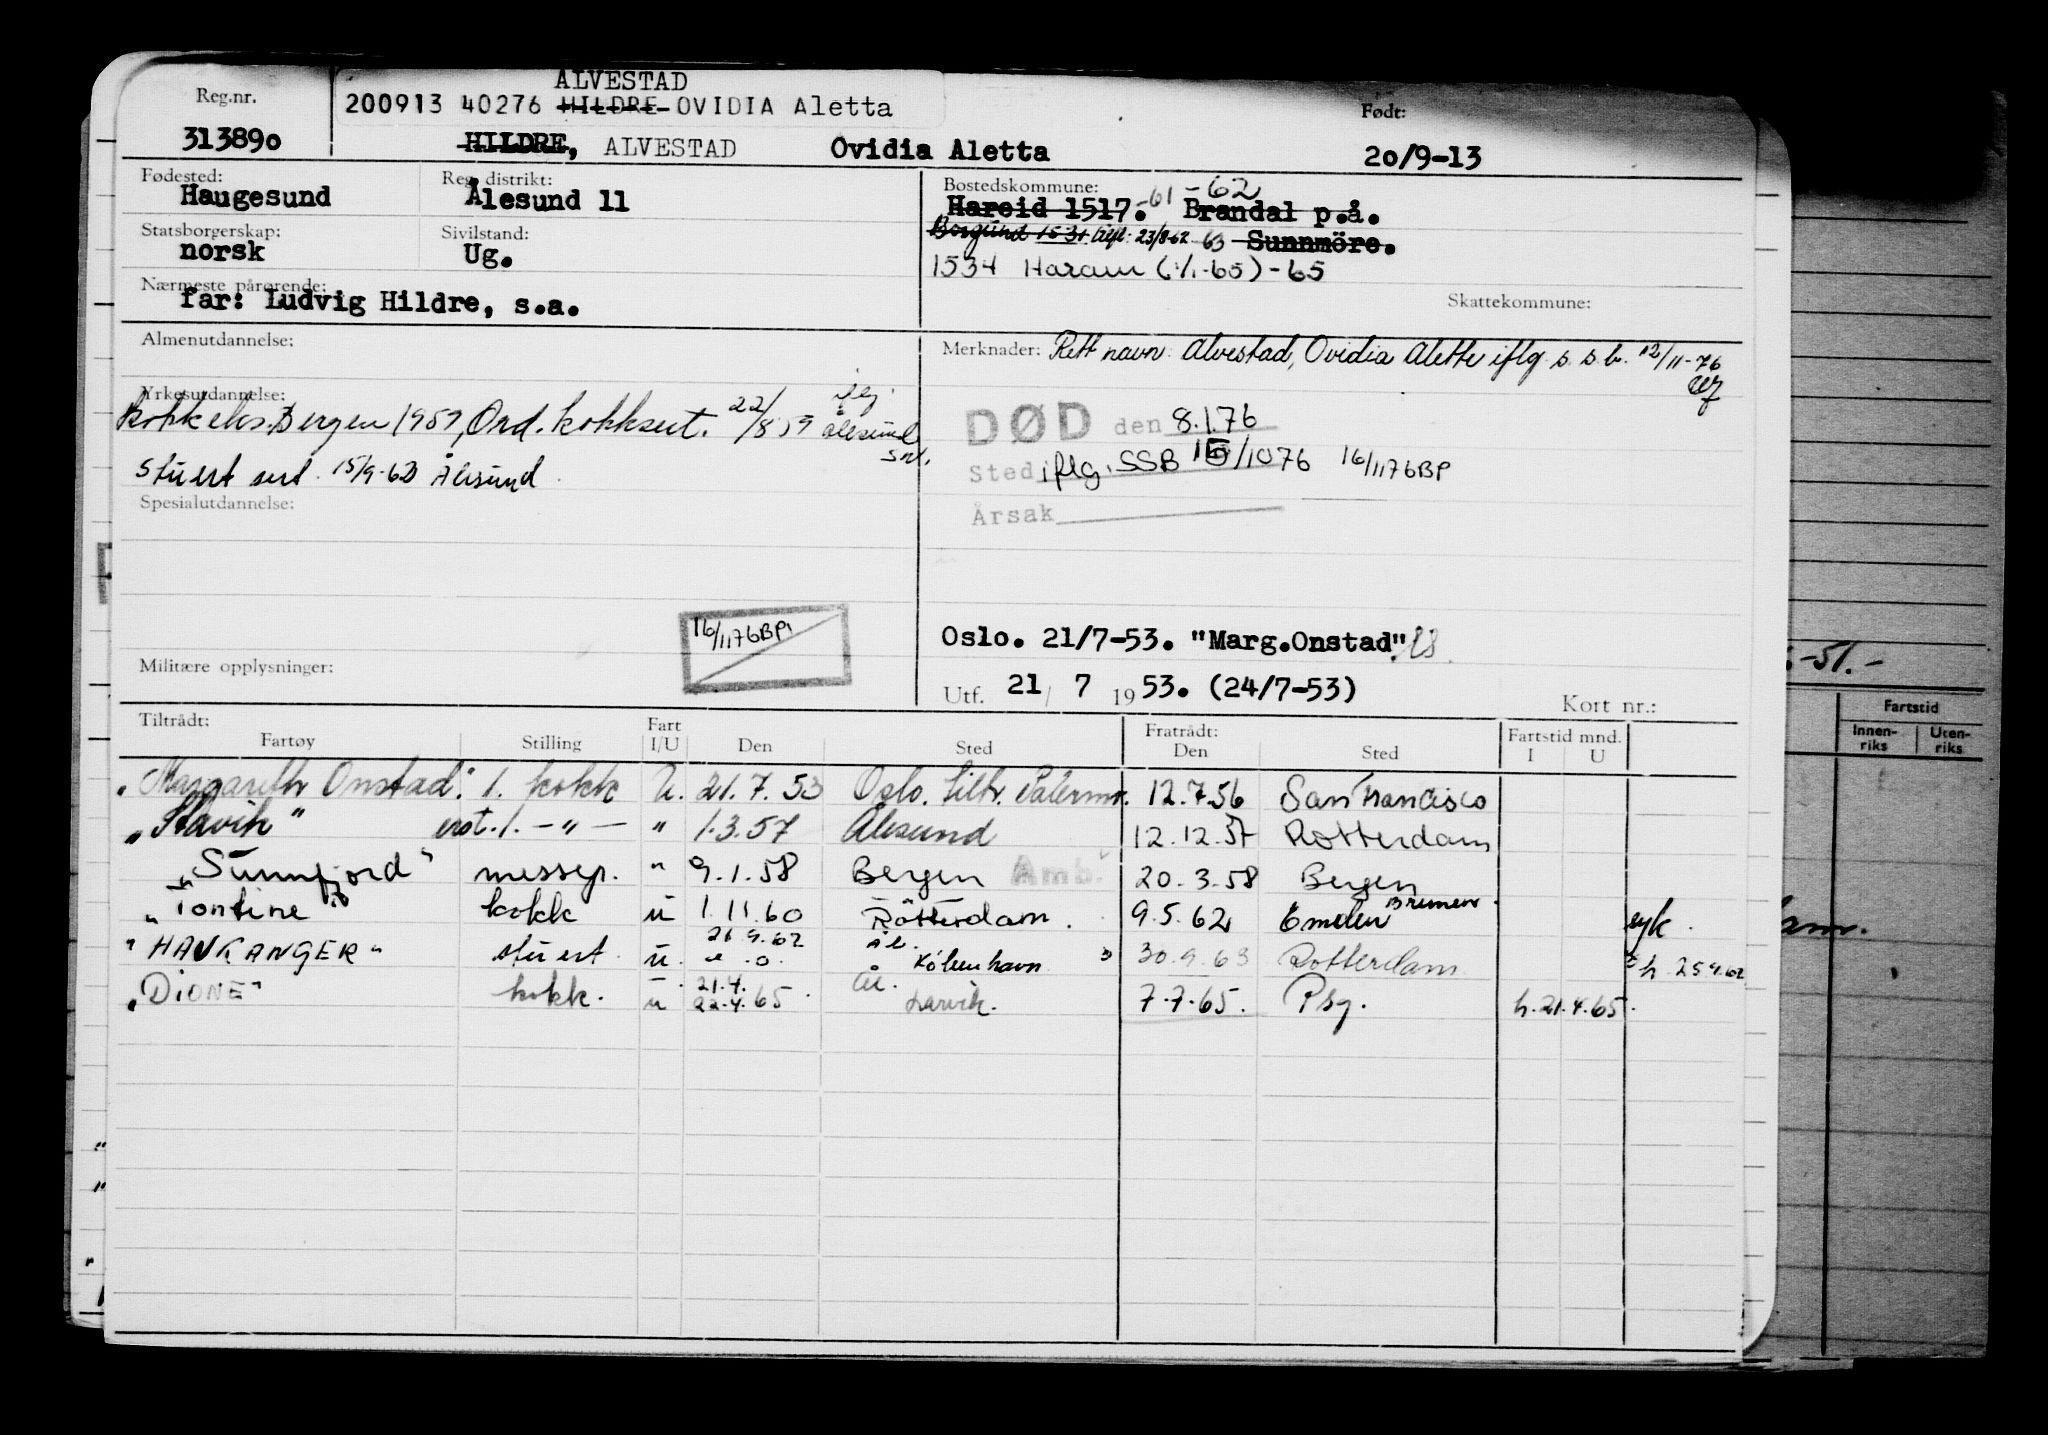 ALVESTAD
Reg.nr.
200913 40276 HILDRE OVIDIA Aletta
Født:
313890
HILDRE, ALVESTAD Ovidia Aletta
20/9-13
Fødested:
Haugesund
Reg. distrikt:
Ålesund 11
Bostedskommune:
-61 -62
Hareid 1517. Brandal p.å.
Statsborgerskap:
norsk
Sivilstand:
Ug.
Borgund 1531 23/8-62 63 Sunnmöre.
1534 Haram (1/1-65)-65
Nærmeste pårørende:
far: Ludvig Hildre, s.a.
Skattekommune:
Almenutdannelse:
Merknader: Rett navn: Alvestad, Ovidia Alette iflg s.s.b. 12/11-76
Yrkesutdannelse:
Kokkeks. Bergen 1959, Ord. kokksert. 22/8 59 iflg Ålesund snt.
stuert sert. 15/9-62 Ålesund
DØD den 8.1.76
Sted iflg. SSB 15/1076 16/1176BP
Årsak
Spesialutdannelse:
16/1176BP
Oslo. 21/7-53. "Marg.Onstad"
Militære opplysninger:
Utf. 21/ 7 1953. (24/7-53)
Kort nr.:
Tiltrådt:
Fartøy Stilling Fart I/U Den Sted
Fratrådt:
Den Sted
Fartstid mnd.
I U
"Margarethe Onstad". 1. kokk U. 21.7.53 Oslo. tiltr. Palermo. 12.7.56 San Francisco
"Slavik" erst. 1. -"- " 1.3.57 Ålesund 12.12.57 Rotterdam
"Sunnfjord" messep. " 9.1.58 Bergen Amb. 20.3.58 Bergen
"Tontine" kokk u 1.11.60 Rotterdam. 9.5.62 Emden Bremen syk.
"HAUKANGER" stuert u. 21.9.62 Ål. København 30.9.63 Rotterdam h. 25.9.62
"DIONE" kokk. u 21.4. 22.4.65 Ål. Larvik. 7.7.65. Psg. h. 21.4.65.
-51.-
Fartstid
Innenriks
Utenriks